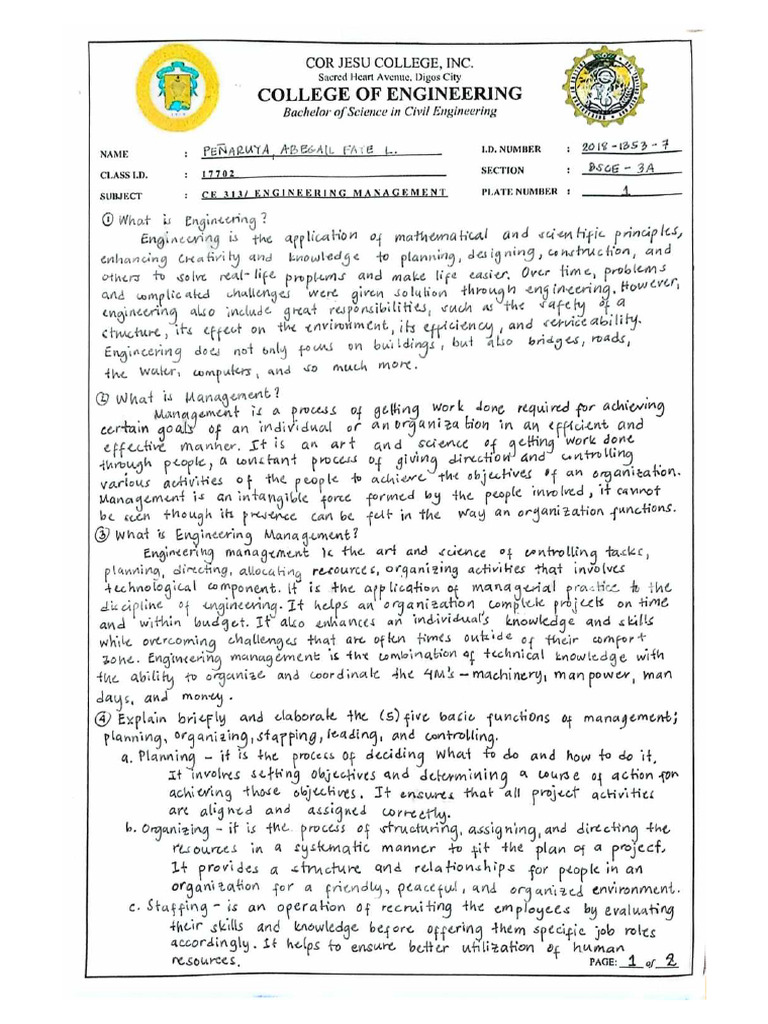 COR JESU COLLEGE, INC.
Sacred Heart Avenue, Digos City
COLLEGE OF ENGINEERING
Bachelor of Science in Civil Engineering
NAME : PEÑARUYA, ABEGAIL FAYE L. I.D. NUMBER : 2018-1353-7
CLASS I.D. : 17702 SECTION : BSCE - 3A
SUBJECT : CE 313/ ENGINEERING MANAGEMENT PLATE NUMBER : 1
① What is Engineering?
Engineering is the application of mathematical and scientific principles,
enhancing creativity and knowledge to planning, designing, construction, and
others to solve real-life problems and make life easier. Over time, problems
and complicated challenges were given solution through engineering. However,
engineering also include great responsibilities, such as the safety of a
structure, its effect on the environment, its efficiency, and serviceability.
Engineering does not only focus on buildings, but also bridges, roads,
the water, computers, and so much more.
② What is Management?
Management is a process of getting work done required for achieving
certain goals of an individual or an organization in an efficient and
effective manner. It is an art and science of getting work done
through people, a constant process of giving direction and controlling
various activities of the people to achieve the objectives of an organization.
Management is an intangible force formed by the people involved, it cannot
be seen though its presence can be felt in the way an organization functions.
③ What is Engineering Management?
Engineering management is the art and science of controlling tasks,
planning, directing, allocating resources, organizing activities that involves
technological component. It is the application of managerial practice to the
discipline of engineering. It helps an organization complete projects on time
and within budget. It also enhances an individual's knowledge and skills
while overcoming challenges that are often times outside of their comfort
zone. Engineering management is the combination of technical knowledge with
the ability to organize and coordinate the 4M's - machinery, man power, man
days, and money.
④ Explain briefly and elaborate the (5) five basic functions of management;
planning, organizing, stapping, leading, and controlling.
a. Planning - it is the process of deciding what to do and how to do it.
It involves setting objectives and determining a course of action for
achieving those objectives. It ensures that all project activities
are aligned and assigned correctly.
b. Organizing - it is the process of structuring, assigning, and directing the
resources in a systematic manner to fit the plan of a project.
It provides a structure and relationships for people in an
organization for a friendly, peaceful, and organized environment.
c. Staffing - is an operation of recruiting the employees by evaluating
their skills and knowledge before offering them specific job roles
accordingly. It helps to ensure better utilization of human
resources.
PAGE: 1 of 2